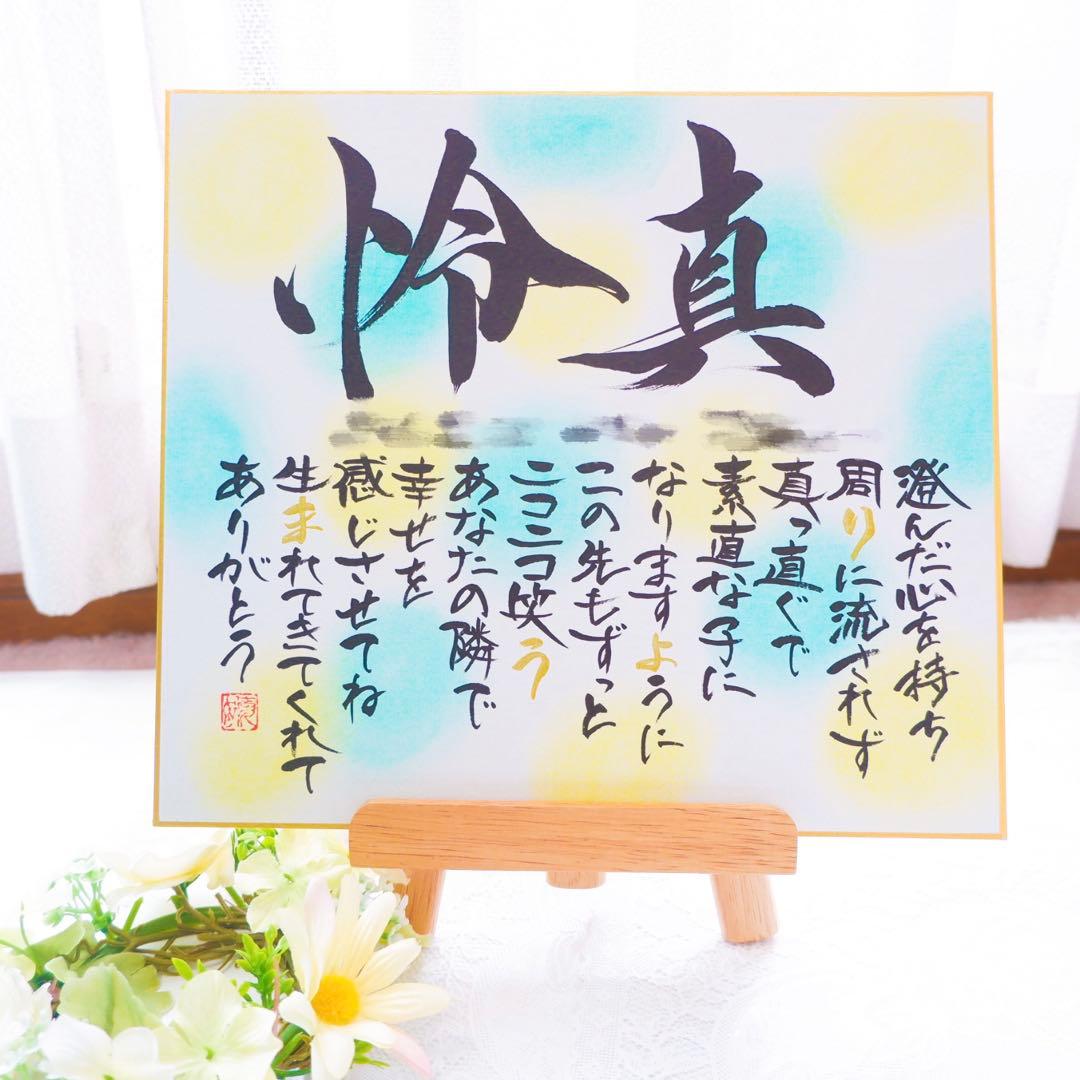 怜真
澄んだ心を持ち
周りに流されず
真っ直ぐで
素直な子に
なりますように
この先もずっと
ニコニコ笑う
あなたの隣で
幸せを
感じさせてね
生まれてきてくれて
ありがとう